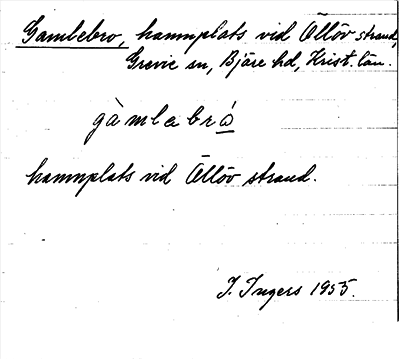 Gamlebro, hamnplats vid Ällöv strand,
Grevie sn, Bjäre hd, Krist. län.
gàmlabró
hamnplats vid Ällöv strand.
I. Ingers 1955.